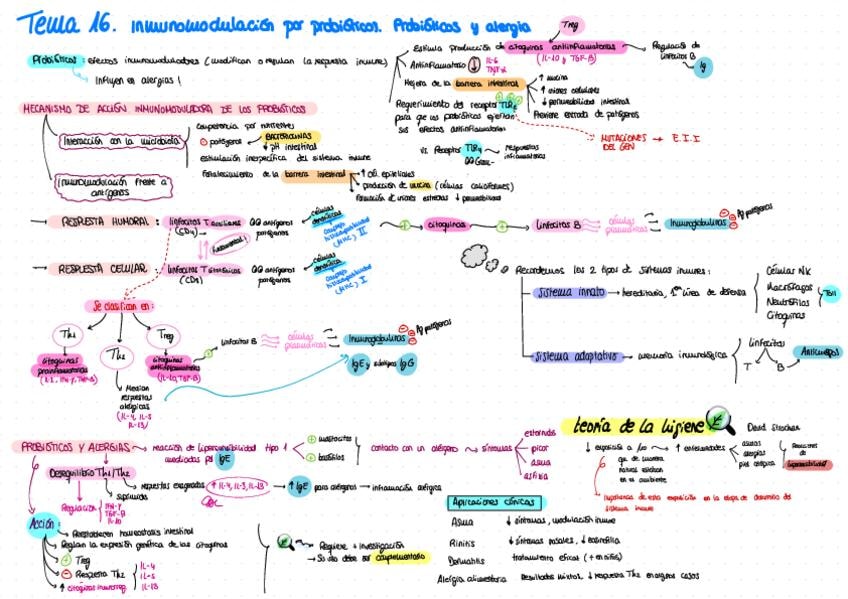 Tema 16. Inmunomodulación por probióticos. Probióticos y alergia
Probióticos: efectos inmunomoduladores (modifican o regulan la respuesta inmune)
Influyen en alergias!
Treg
Estimula producción de citoquinas antiinflamatorias
(IL-10 y TGF-β)
Regulación de
linfocitos B
Ig
Antiinflamatorio ↓ IL-6
Mejora de la barrera intestinal
↑ mucina
↑ uniones celulares
↓ permeabilidad intestinal
Previene entrada de patógenos
Requerimiento del receptor TLR
para que los probióticos ejerzan
sus efectos antiinflamatorios
MUTACIONES → E.I.I
DEL GEN
vs. Receptor TLR4 → respuestas
inflamatorias
MECANISMO DE ACCIÓN INMUNOMODULADORA DE LOS PROBIÓTICOS
Interacción con la microbiota
competencia por nutrientes
patógenos
BACTERIOCINAS
↓ pH intestinal
estimulación inespecífica del sistema inmune
Fortalecimiento de la barrera intestinal
↑ cél. epiteliales
producción de mucina (células caliciformes)
formación de uniones estrechas ↓ permeabilidad
Inmunomodulación frente a
antígenos
RESPUESTA HUMORAL: linfocitos T auxiliares
(CD4)
antígenos
patógenos
células
dendríticas
complejo
histocompatibilidad
(MHC) II
citoquinas
linfocitos B
células
plasmáticas
Inmunoglobulinas
Ag patógenos
RESPUESTA CELULAR: linfocitos T citotóxicos
antígenos
patógenos
células
dendríticas
complejo
histocompatibilidad
(MHC) I
Se clasifican en:
Th1
Th2
Treg
citoquinas
proinflamatorias
citoquinas
antiinflamatorias
(IL-10, TGF-β)
Median
respuestas
alérgicas
(IL-4, IL-5
IL-13)
linfocitos B
células
plasmáticas
Inmunoglobulinas
Ag patógenos
IgE y subtipos IgG
Recordemos los 2 tipos de sistemas inmunes:
Sistema innato → hereditaria, 1ª línea de defensa
Células NK
Macrófagos
Neutrófilos
Citoquinas
Sistema adaptativo → memoria inmunológica
linfocitos
T B
Anticuerpos
PROBIÓTICOS Y ALERGIAS → reacción de hipersensibilidad tipo 1
mediadas por IgE
mastocitos
basófilos
contacto con un alérgeno → síntomas
estornudos
picor
asma
asfixia
Desequilibrio Th1/Th2
suprimida
respuestas exageradas ↑ IL-4, IL-5, IL-13
↑ IgE para alérgenos → inflamación alérgica
Regulación
IFN-γ
TGF-β
IL-10
Acción:
Restablecen homeostasis intestinal
Regulan la expresión genética de las citoquinas
+ Treg
- Respuesta Th2
IL-4
IL-5
IL-13
Requiere + investigación
→ Solo debe ser complementario
teoría de la higiene
David Strachan
↓ exposición a
que de manera
natural estaban
en el ambiente
↑ enfermedades
asma
alergias
piel atópica
Reacciones
de
hipersensibilidad
Importancia de esta exposición en la etapa de desarrollo del
sistema inmune
Aplicaciones clínicas
Asma ↓ síntomas, modulación inmune
Rinitis ↓ síntomas nasales, ↓ eosinofilia
Dermatitis tratamiento eficaz (+ en niños)
Alergia alimentaria Resultados mixtos, ↓ respuesta Th2 en algunos casos